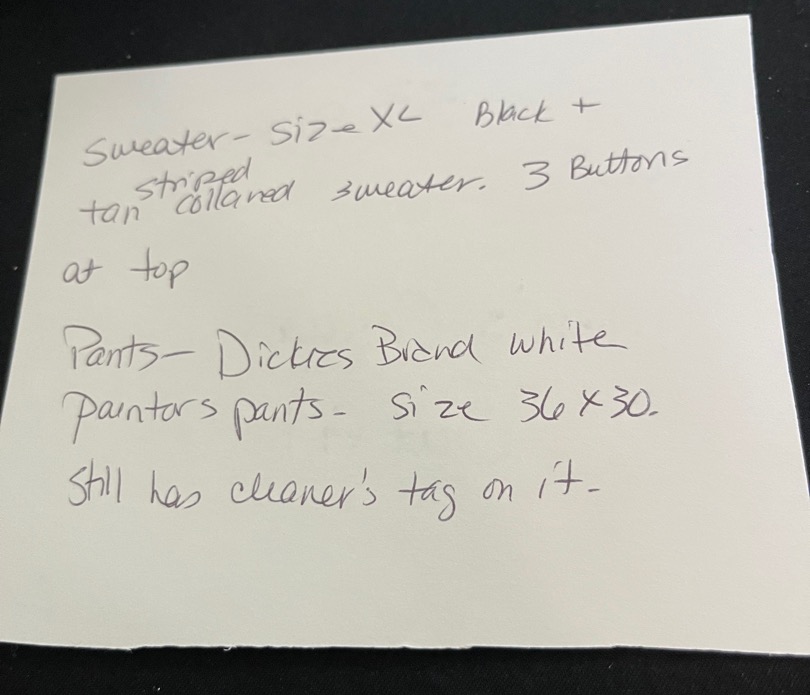 Sweater- Size XL Black +
tan striped collared sweater. 3 Buttons
at top
Pants- Dickies Brand white
Painters pants- size 36 x 30.
Still has cleaner's tag on it-